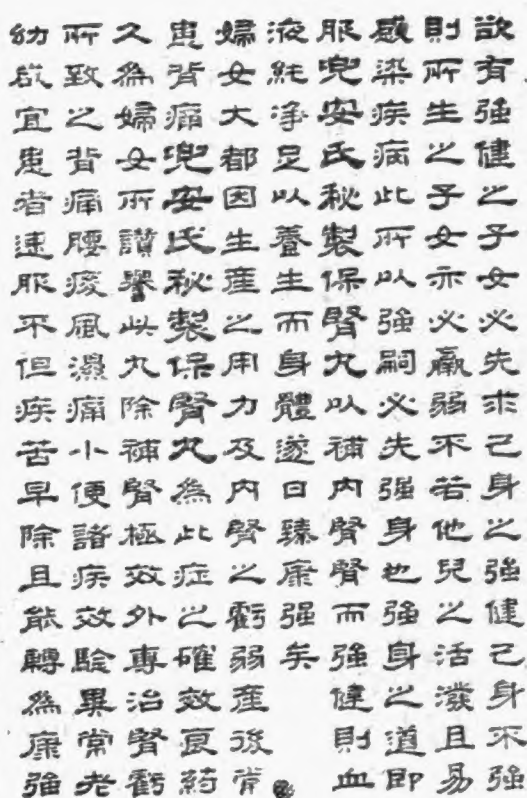 欲有強健之子女必先求己身之強健己身不強
則所生之子女亦必羸弱不若他兒之活潑且易
感染疾病此所以強嗣必先強身也強身之道即
服兜安氏秘製保腎丸以補內腎腎而強健則血
液純淨足以養生而身體遂日臻康强矣
婦女大都因生產之用力及內腎之虧弱產後常
患背痛兜安氏秘製保腎丸為此症之確效良药
久為婦女所讚譽此丸除補腎極效外專治腎虧
所致之背痛腰痠風濕痛小便諸疾效驗異常老
幼咸宜患者速服不但疾苦早除且能轉為康強